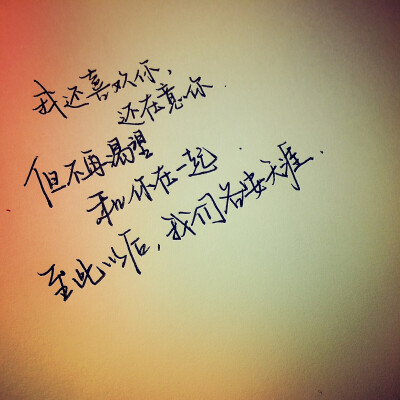 我还喜欢你，
还在意你.
但不再渴望
和你在一起
至此以后，我们各安天涯.